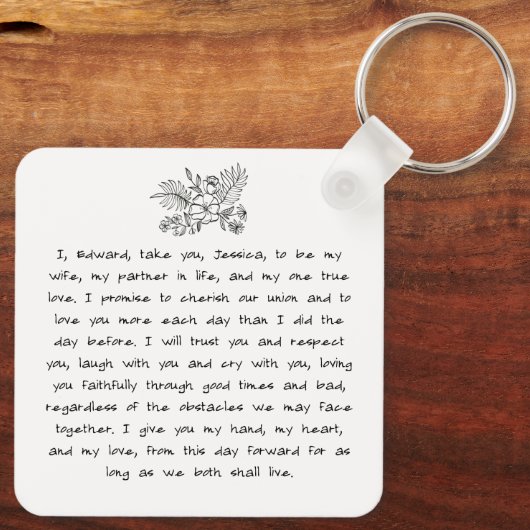 I, Edward, take you, Jessica, to be my
wife, my partner in life, and my one true
love. I promise to cherish our union and to
love you more each day than I did the
day before. I will trust you and respect
you, laugh with you and cry with you, loving
you faithfully through good times and bad,
regardless of the obstacles we may face
together. I give you my hand, my heart,
and my love, from this day forward for as
long as we both shall live.